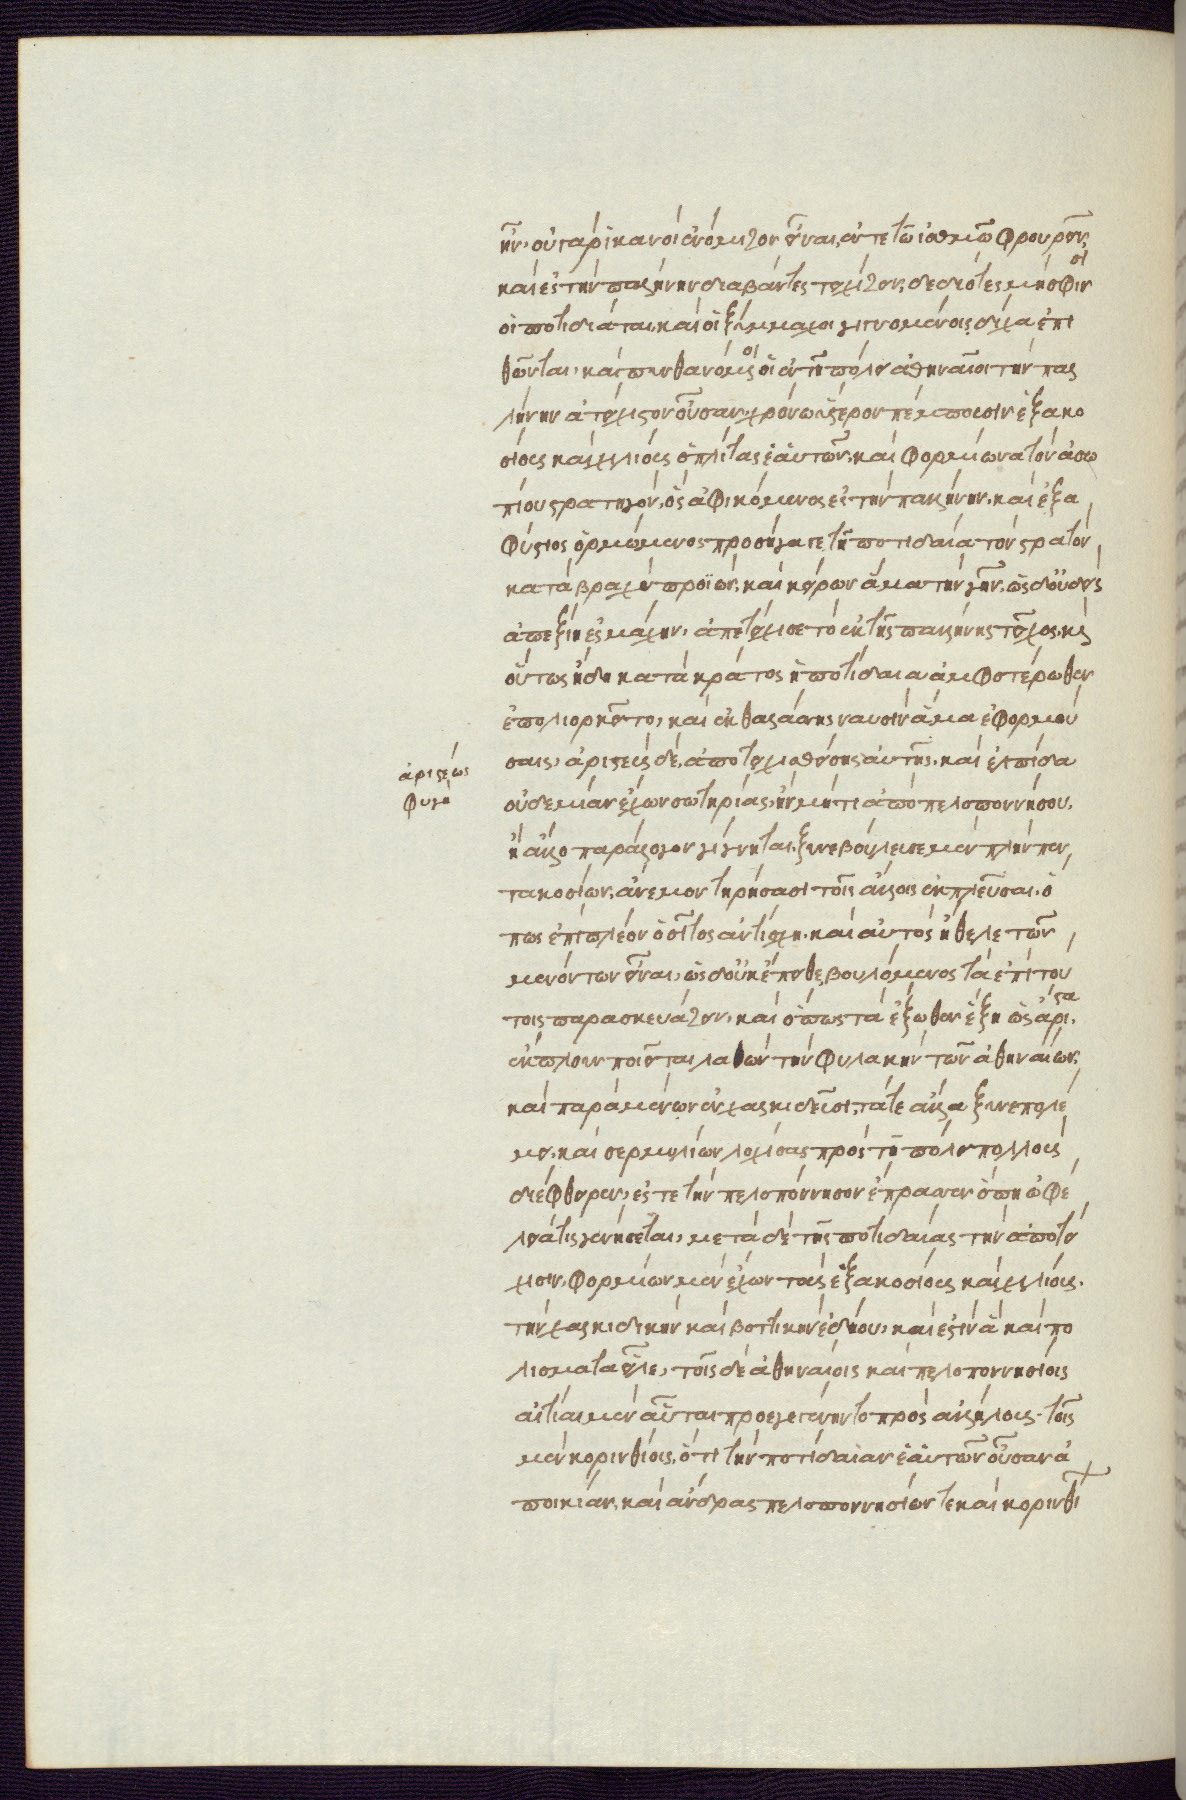 ἦν· οὐ γὰρ ἱκανοὶ ἐνόμιζον εἶναι, ἔν τε τῶ ἰσθμῶ φρουρεῖν,
καὶ ἐς τὴν παλλήνην διαβάντες τειχίζειν, δεδιότες μὴ σφίσιν
οἱ ποτιδιάται καὶ οἱ ξύμμαχοι γιγνομένοις δίχα ἐπι
θῶνται, καὶ πυνθανόμενοι οἱ ἐν τῆ πόλει ἀθηναῖοι τὴν παλ
λήνην ἀτείχιστον οὖσαν, χρόνω ὕστερον πέμπουσιν ἑξακο
σίους καὶ χιλίους ὁπλίτας ἑαυτῶν, καὶ φορμίωνα τὸν ἀσω
πίου στρατηγόν, ὃς ἀφικόμενος ἐς τὴν παλλήνην, καὶ ἐξ ἀ
φύτιος ὁρμώμενος προσήγαγε τῆ ποτιδαία τὸν στρατόν
κατὰ βραχὺ προϊών, καὶ κείρων ἅμα τὴν γῆν, ὡς δ' οὐδεὶς
ἀπεξῄει ἐς μάχην, ἀπετείχισε τὸ ἐκ τῆς παλλήνης τεῖχος, καὶ
οὕτως ἤδη κατὰ κράτος ἡ ποτίδαια ἀμφοτέρωθεν
ἐπολιορκεῖτο, καὶ ἐκ θαλάσσης ναυσὶν ἅμα ἐφορμού
σαις, ἀριστεὺς δὲ, ἀποτειχισθείσης αὐτῆς, καὶ ἐλπίδα
ἀριστέως
φυγή
οὐδεμίαν ἔχων σωτηρίας, ἢν μή τι ἀπὸ πελοποννήσου,
ἢ ἄλλο παράλογον γίγνηται, ξυνεβούλευε μὲν πλὴν πεν
τακοσίων, ἄνεμον τηρήσασι τοῖς ἄλλοις ἐκπλεῦσαι, ὅ
πως ἐπὶ πλέον ὁ σῖτος ἀντίσχη. καὶ αὐτὸς ἤθελε τῶν
μενόντων εἶναι, ὡς δ' οὐκ ἔπειθε, βουλόμενος τὰ ἐπὶ τού
τοις παρασκευάζειν, καὶ ὅπως τὰ ἔξωθεν ἕξει ὡς ἄριστα,
ἔκπλουν ποιεῖται λαθὼν τὴν φυλακὴν τῶν ἀθηναίων,
καὶ παραμένων ἐν χαλκιδεῦσι, τά τε ἄλλα ξυνεπολέ
μει, καὶ σερμυλίων λοχίσας πρὸς τῇ πόλει πολλοὺς
διέφθειρεν, ἔς τε τὴν πελοπόννησον ἔπρασσεν ὅπη ὠφέ
λειά τις γενήσεται, μετὰ δὲ τῆς ποτιδαίας τὴν ἀποτεί
χισιν, φορμίων μὲν ἔχων τοὺς ἑξακοσίους καὶ χιλίους,
τὴν χαλκιδικὴν καὶ βοττικὴν ἐδῄου, καὶ ἔστιν ἃ καὶ πο
λίσματα εἷλε, τοῖς δὲ ἀθηναίοις καὶ πελοποννησίοις
αἰτίαι μὲν αὗται προεγεγένηντο πρὸς ἀλλήλους. τοῖς
μὲν κορινθίοις, ὅτι τὴν ποτίδαιαν ἑαυτῶν οὖσαν ἀ
ποικίαν, καὶ ἄνδρας πελοποννησίων τε καὶ κορινθί